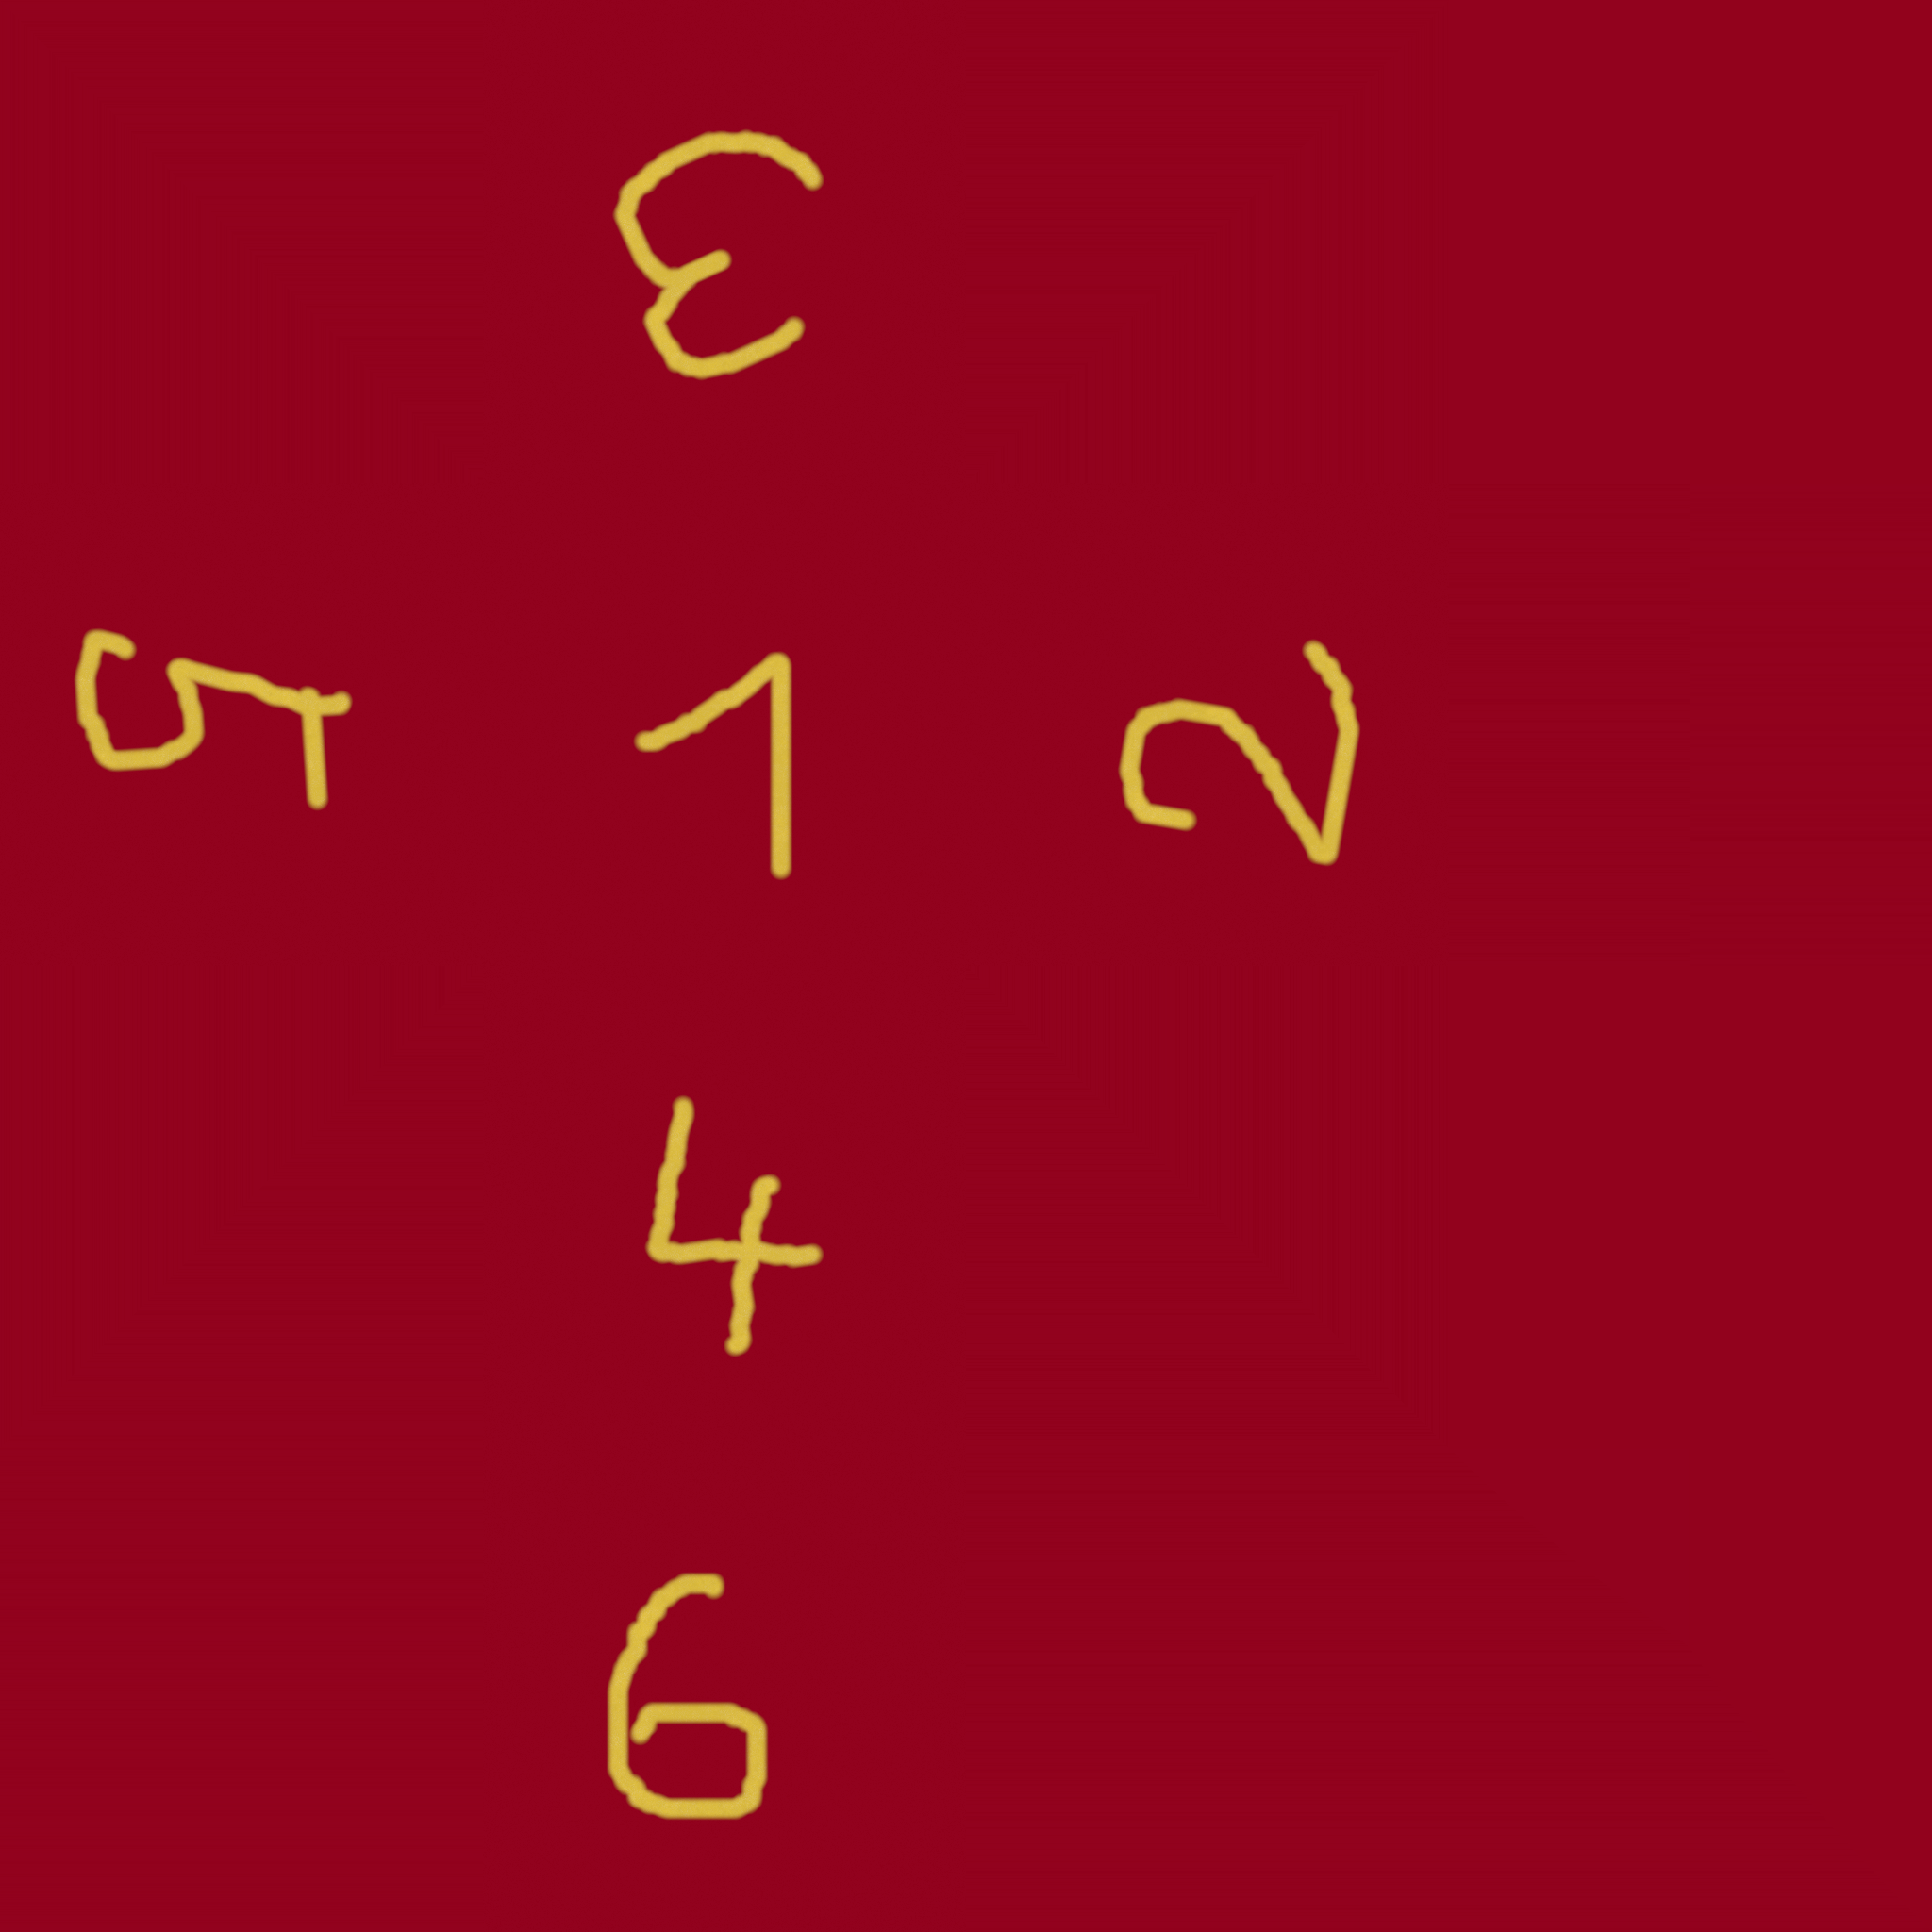 3
5 1 2
4
6